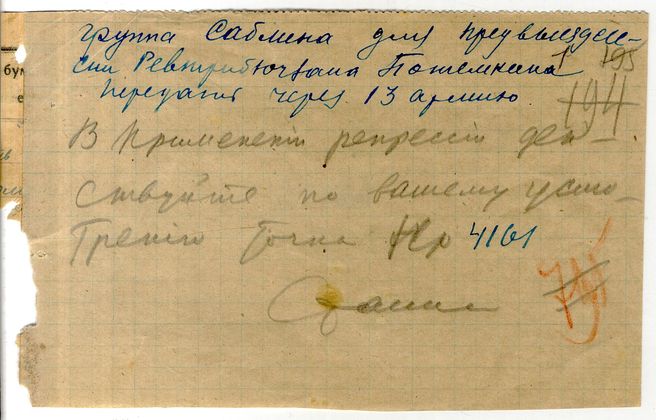 группа Саблина для предвыездсес-
сии Ревтрибюжана Потемкина
передать через 13 армию
195
194
В применении репрессий дей-
ствуйте по вашему усмо-
трению точка Нр 4161
бум
е